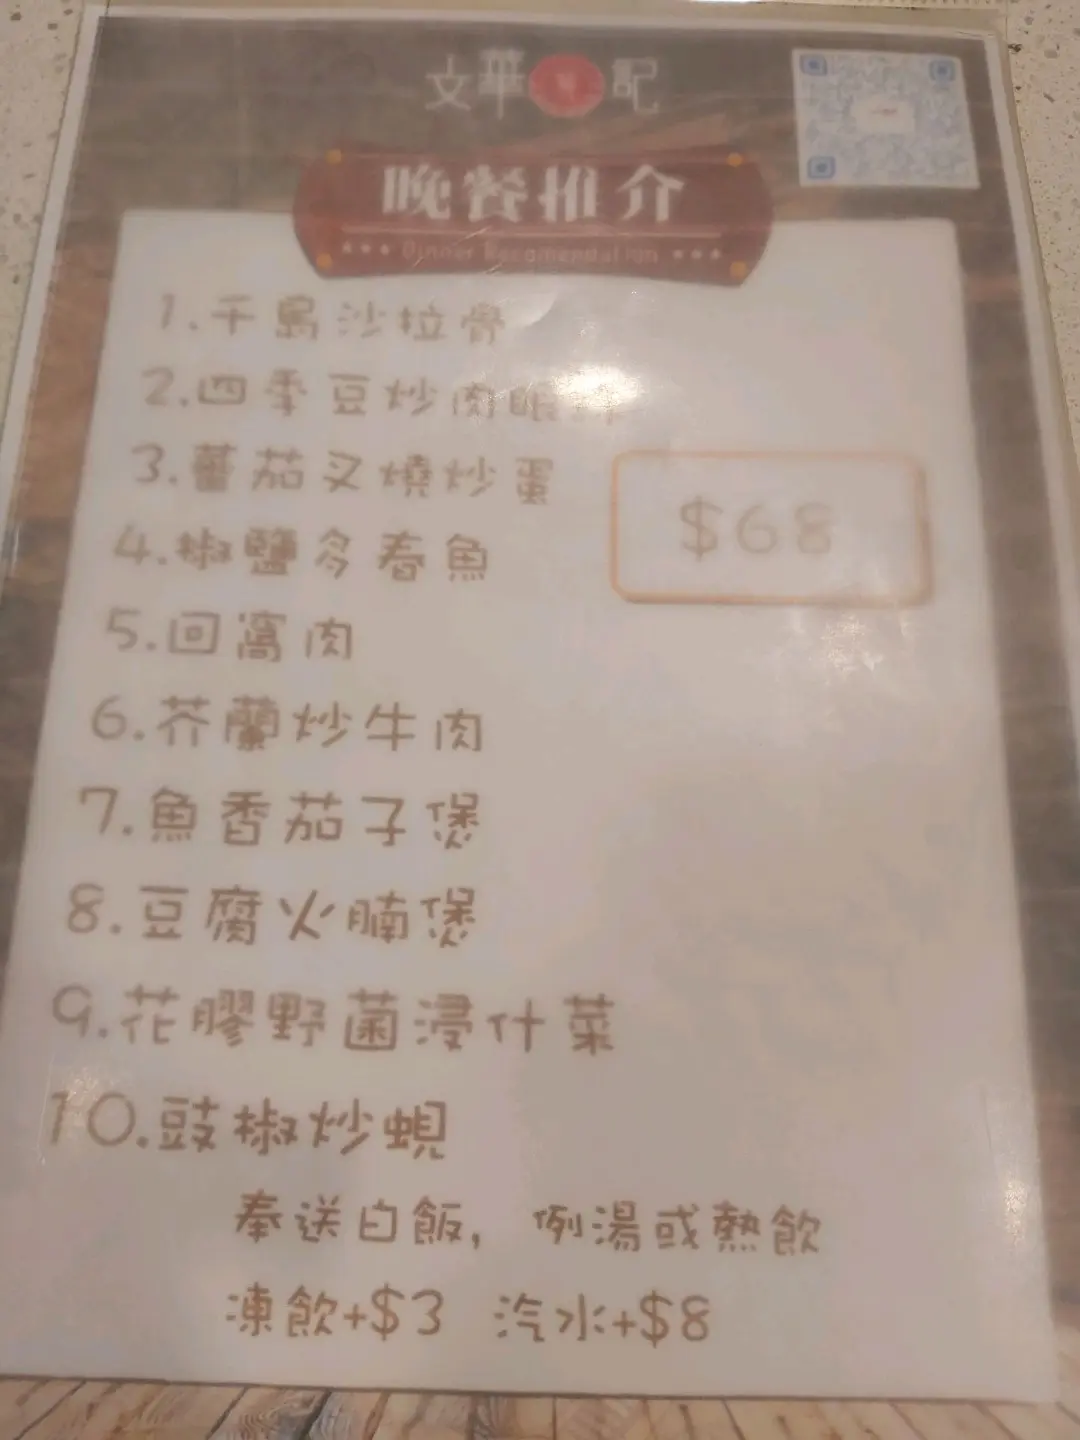 文華 記
晚餐推介
Dinner Recomendation
1.千島沙拉骨
2.四季豆炒肉眼
3.蕃茄叉燒炒蛋
$68
4.椒鹽多春魚
5.回窩肉
6.芥蘭炒牛肉
7.魚香茄子煲
8.豆腐火腩煲
9.花膠野菌浸什菜
10.豉椒炒蜆
奉送白飯，例湯或熱飲
凍飲+$3 汽水+$8